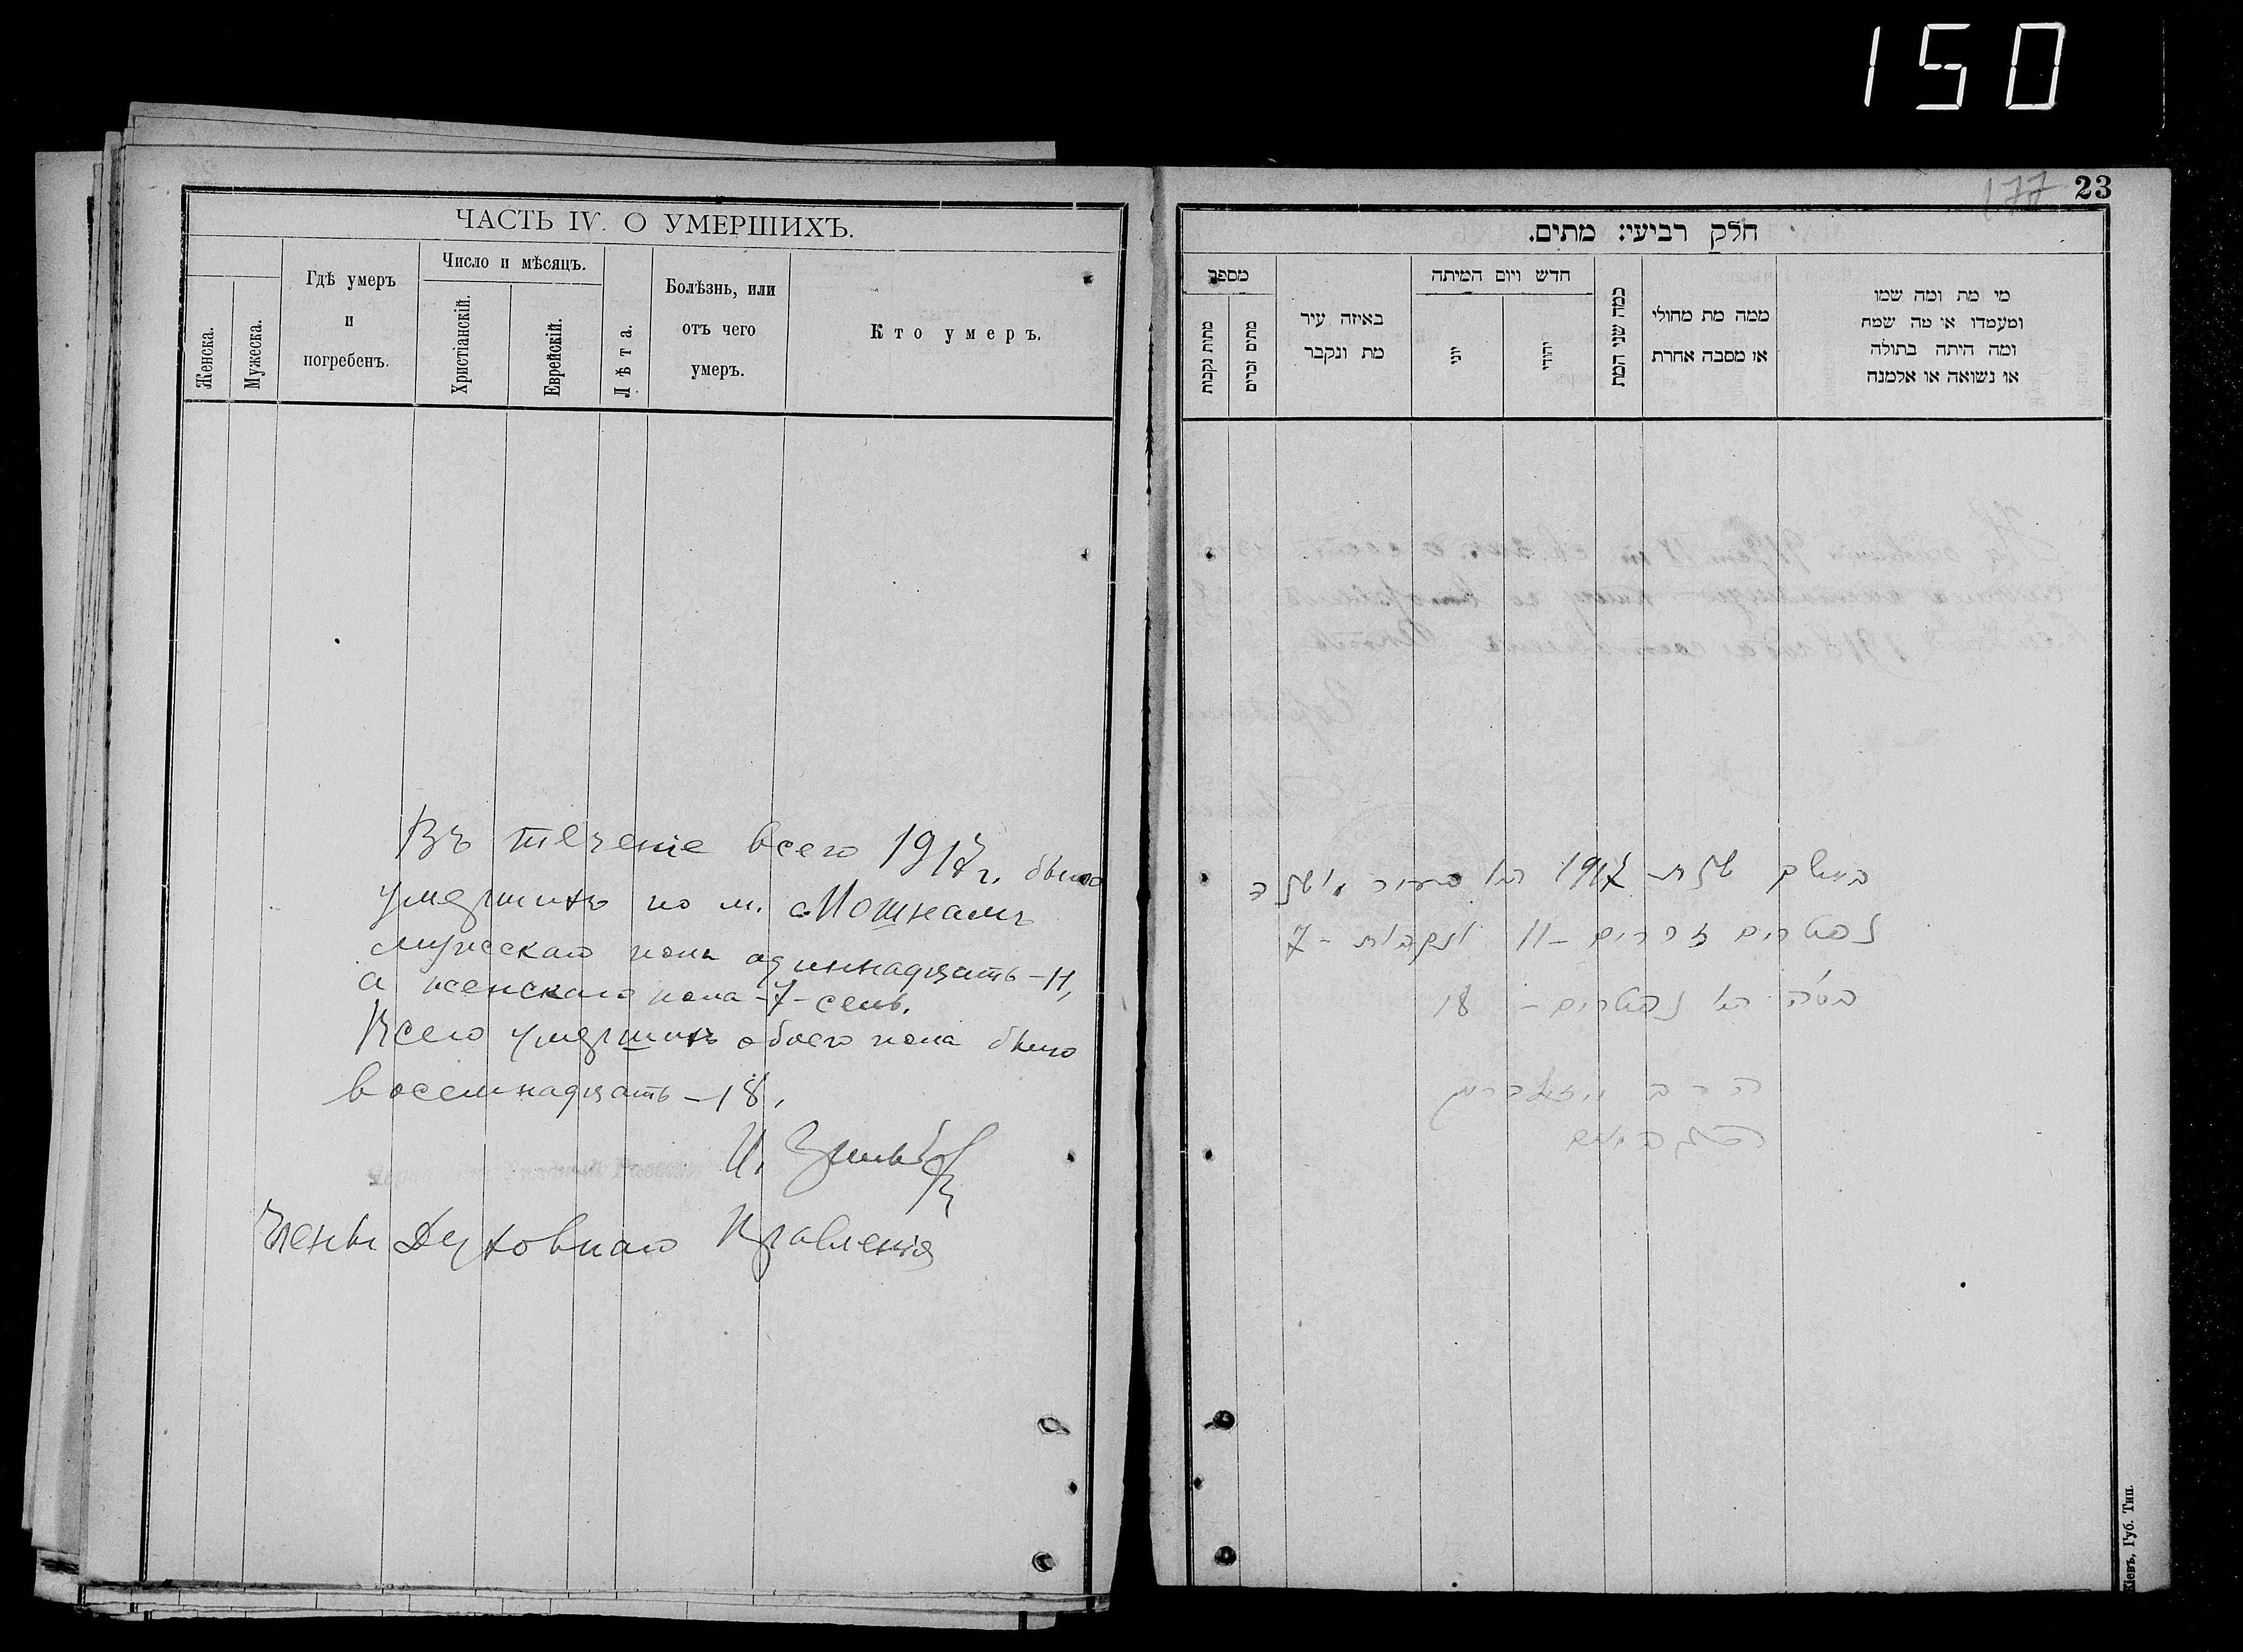 150
ЧАСТЬ IV. О УМЕРШИХЪ.
Женска.
Мужеска.
Гдѣ умеръ
и
погребенъ.
Число и мѣсяцъ.
Христіанскій.
Еврейскій.
Лѣта.
Болѣзнь, или
отъ чего
умеръ.
Кто умеръ.
Въ теченіе всего 1917 г. было
умершихъ по м. Мошнамъ
мужескаго пола одиннадцать – 11,
а женскаго пола – 7 – семь.
Всего умершихъ обоего пола было
восемнадцать – 18.
И.
Члены Духовнаго Правленія
177 23
חלק רביעי: מתים.
מספר
מתות נקבות
מתים זכרים
באיזה עיר
מת ונקבר
חדש ויום המיתה
יוני
יהודי
כמה שני המת
ממה מת מחולי
או מסבה אחרת
מי מת ומה שמו
ומעמדו או מה שמה
ומה היתה בתולה
או נשואה או אלמנה
במשך שנת 1917
נפטרים זכרים – 11 ונקבות – 7
נפטרים – 18
הרב
Кіевъ, Губ. Тип.